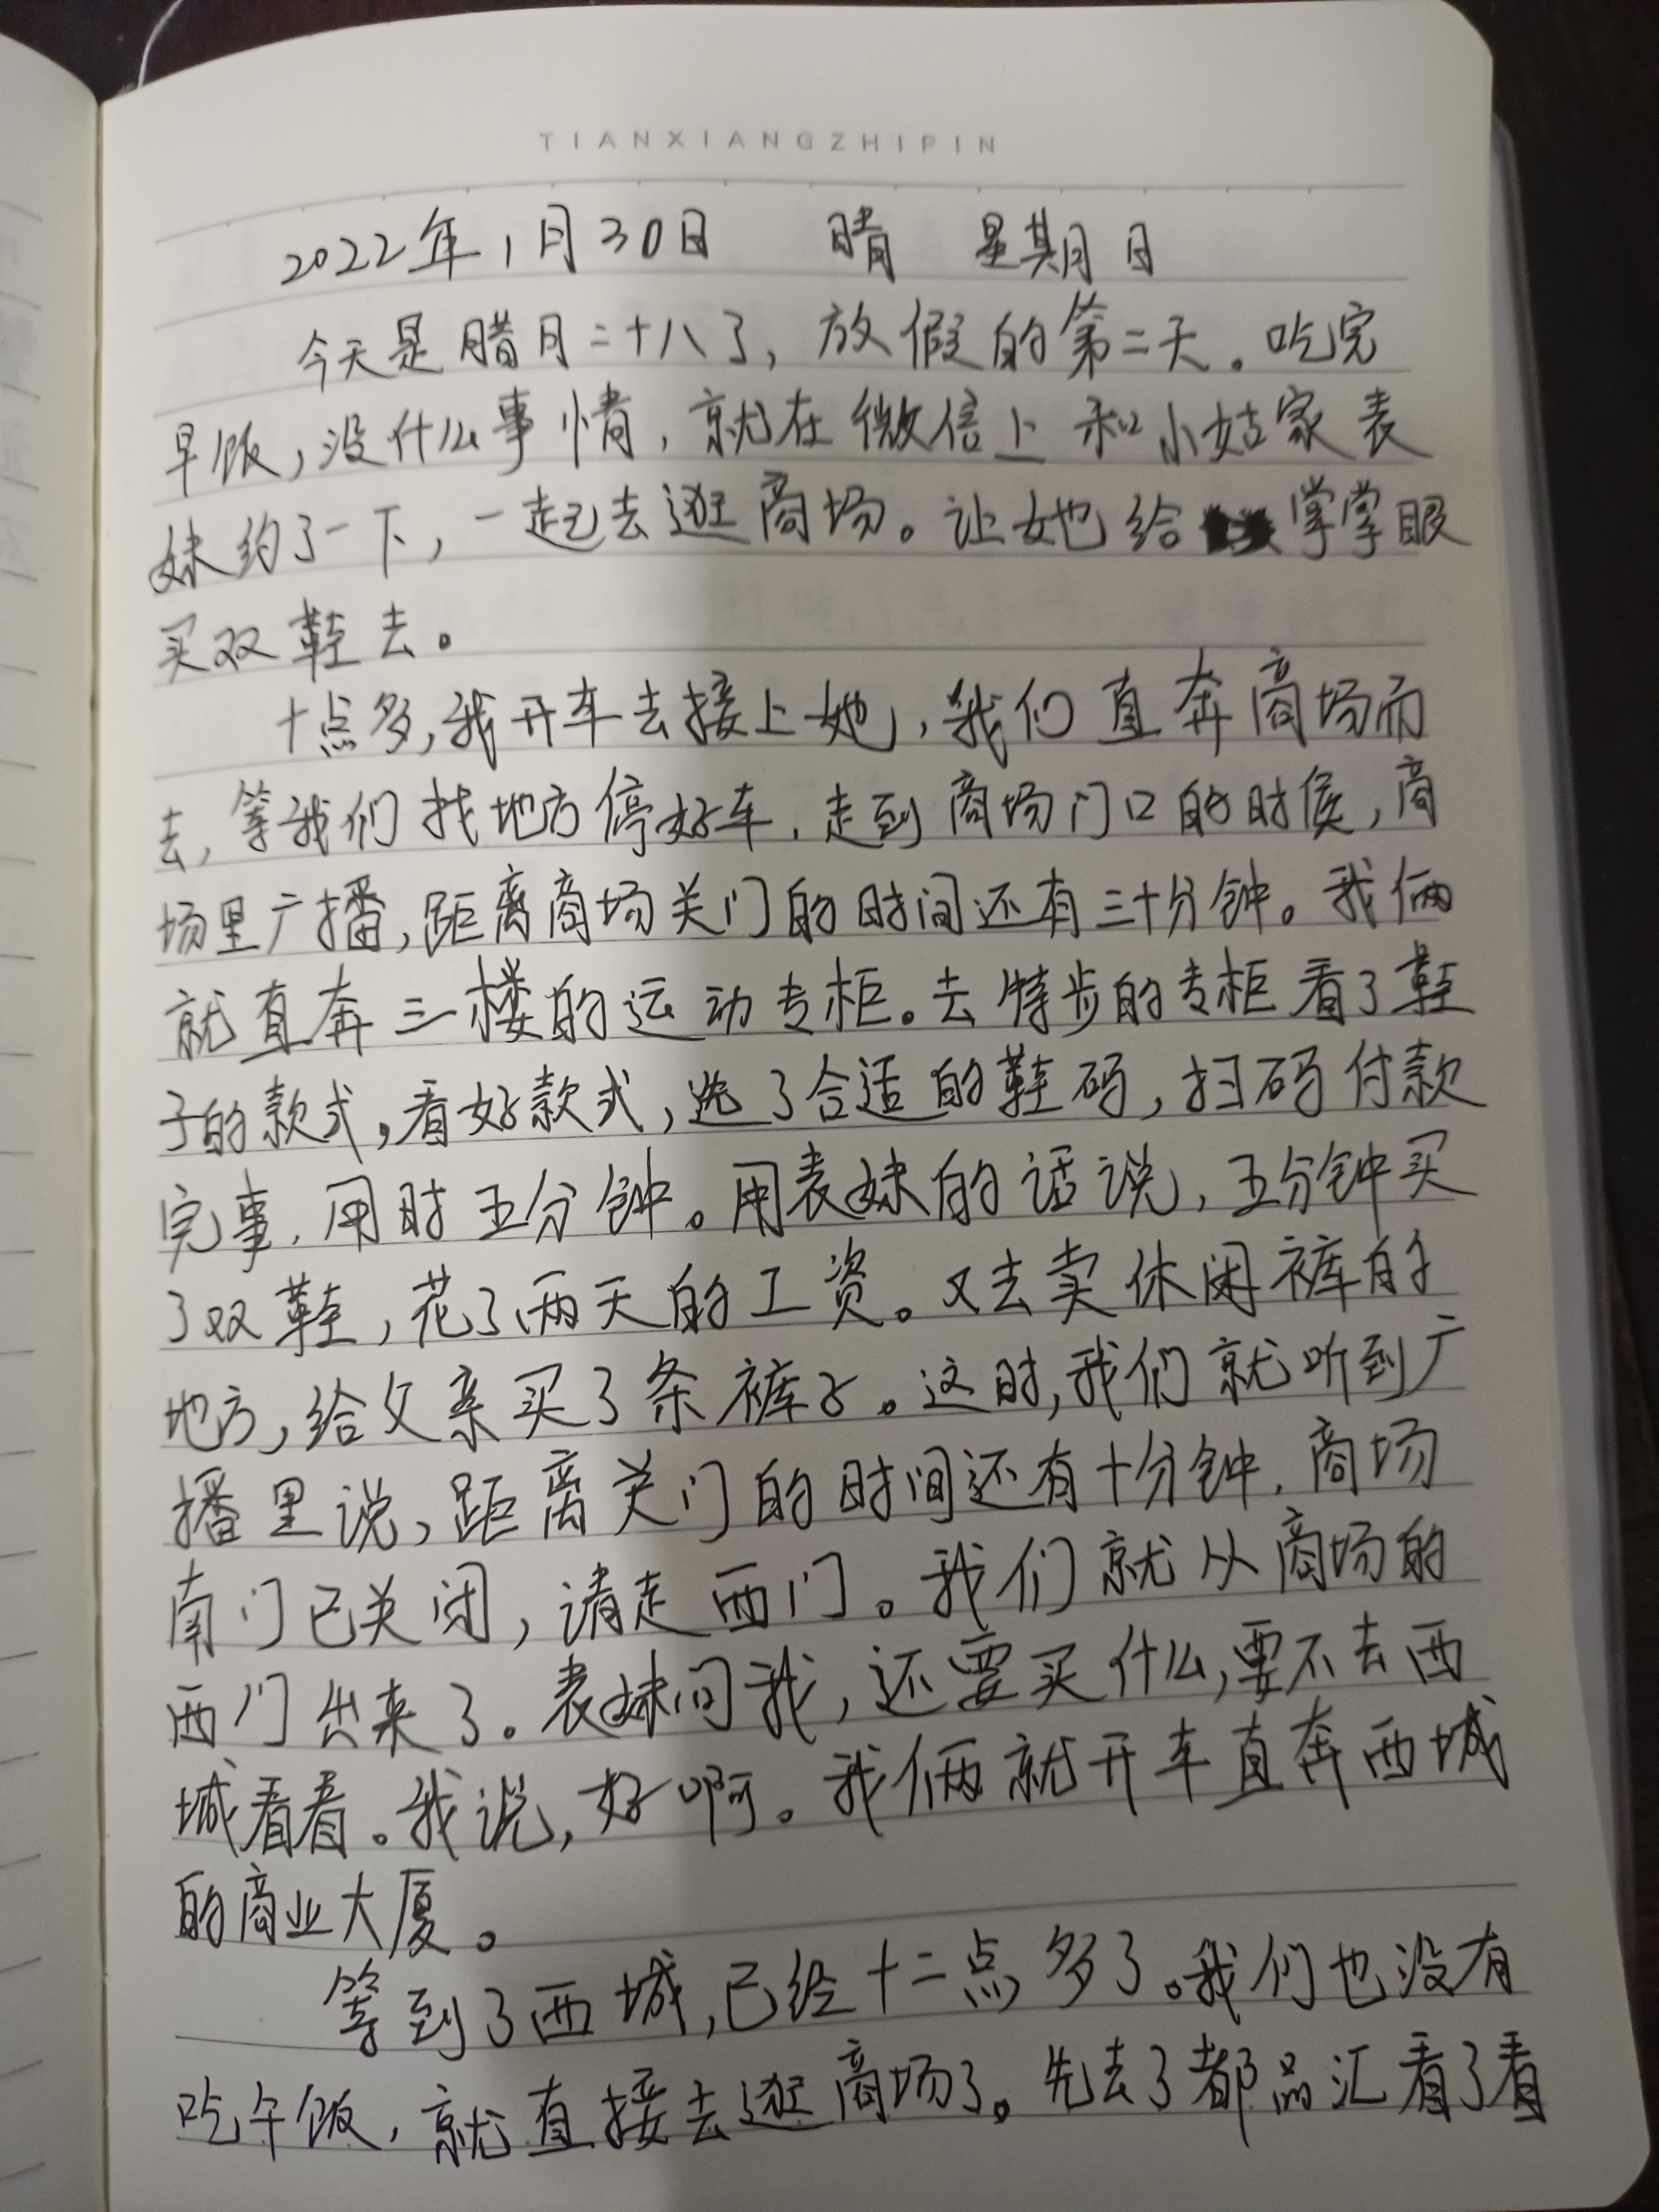 TIANXIANGZHIPIN
2022年1月30日 晴 星期日
今天是腊月二十八了，放假的第二天。吃完
早饭，没什么事情，就在微信上和小姑家表
妹约了一下，一起去逛商场。让她给掌掌眼
买双鞋去。
十点多，我开车去接上她，我们直奔商场而
去，等我们找地方停好车，走到商场门口的时候，商
场里广播，距离商场关门的时间还有三十分钟。我俩
就直奔三楼的运动专柜。去特步的专柜看了鞋
子的款式，看好款式，选了合适的鞋码，扫码付款
完事，用时五分钟。用表妹的话说，五分钟买
了双鞋，花了两天的工资。又去卖休闲裤的
地方，给父亲买了条裤子。这时，我们就听到广
播里说，距离关门的时间还有十分钟，商场
南门已关闭，请走西门。我们就从商场的
西门出来了。表妹问我，还要买什么，要不去西
城看看。我说，好啊。我俩就开车直奔西城
的商业大厦。
等到了西城，已经十二点多了。我们也没有
吃午饭，就直接去逛商场了。先去了都品汇看了看